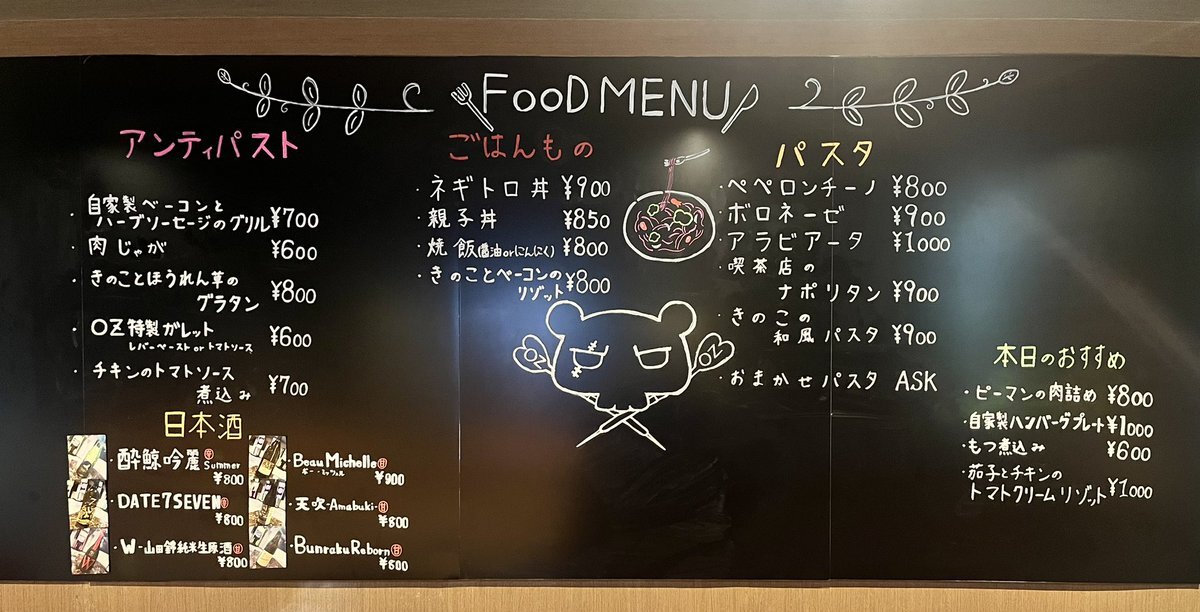 FOOD MENU
アンティパスト
・自家製ベーコンと
ハーブソーセージのグリル ¥700
・肉じゃが ¥600
・きのことほうれん草の
グラタン ¥800
・OZ特製ガレット ¥600
レバーペースト or トマトソース
・チキンのトマトソース
煮込み ¥700
日本酒
・酔鯨吟麗 Summer
¥800
・DATE7SEVEN
¥800
・W-山田錦純米生原酒
¥800
・Beau Michelle 甘
ボー・ミッシェル
¥900
・天吹-Amabuki- 甘
¥800
・Bunraku Reborn 甘
¥600
ごはんもの
・ネギトロ丼 ¥900
・親子丼 ¥850
・焼飯(醤油orにんにく) ¥800
・きのことベーコンの
リゾット ¥800
OZ OZ
パスタ
・ペペロンチーノ ¥800
・ボロネーゼ ¥900
・アラビアータ ¥1000
・喫茶店の
ナポリタン ¥900
・きのこの
和風パスタ ¥900
・おまかせパスタ ASK
本日のおすすめ
・ピーマンの肉詰め ¥800
・自家製ハンバーグプレート ¥1000
・もつ煮込み ¥600
・茄子とチキンの
トマトクリームリゾット ¥1000